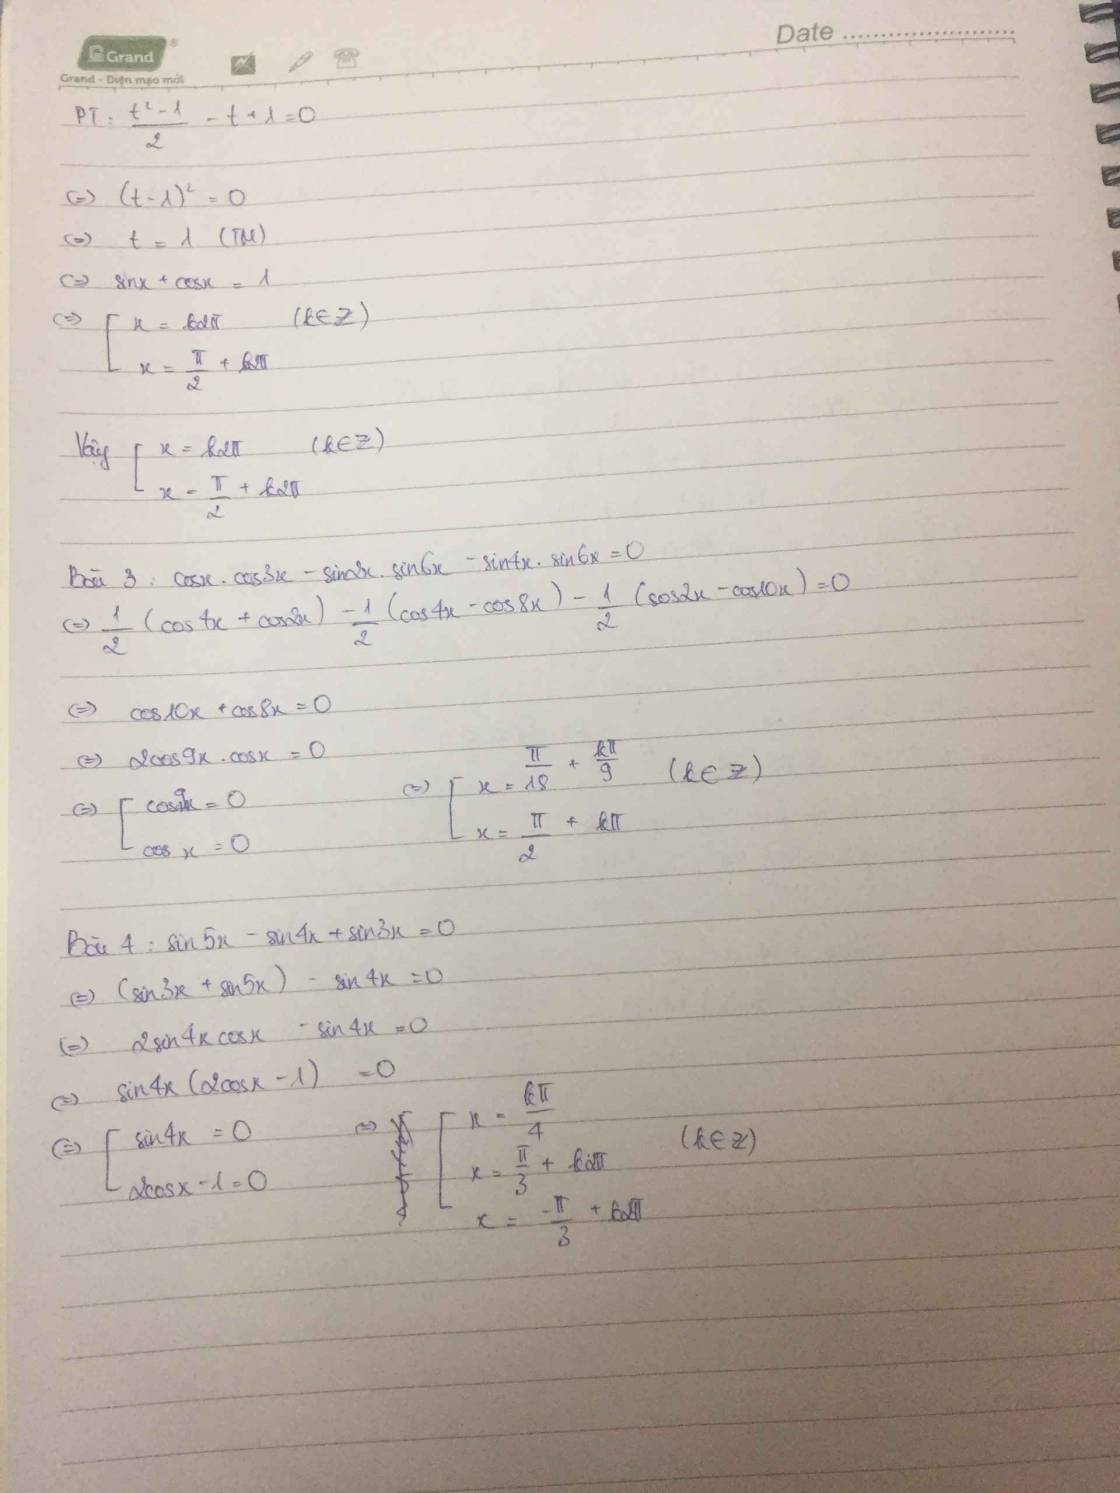 Date
Grand
Grand - Diện mạo mới
PT: (t² - 1)/2 - t + 1 = 0
(=) (t - 1)² = 0
(=) t = 1 (TM)
(=) sinx + cosx = 1
(=) [ x = k2π (k∈Z)
x = π/2 + k2π
Vậy [ x = k2π (k∈Z)
x = π/2 + k2π
Bài 3 : cosx . cos3x - sin2x . sin6x - sin4x . sin6x = 0
(=) 1/2 (cos4x + cos2x) - 1/2 (cos4x - cos8x) - 1/2 (cos2x - cos10x) = 0
(=) cos10x + cos8x = 0
(=) 2cos9x . cosx = 0
(=) [ cos9x = 0 (=) [ x = π/18 + kπ/9 (k∈Z)
cosx = 0 x = π/2 + kπ
Bài 4 : sin5x - sin4x + sin3x = 0
(=) (sin3x + sin5x) - sin4x = 0
(=) 2sin4xcosx - sin4x = 0
(=) sin4x (2cosx - 1) = 0
(=) [ sin4x = 0 (=) [ x = kπ/4
2cosx - 1 = 0 x = π/3 + k2π (k∈Z)
x = -π/3 + k2π